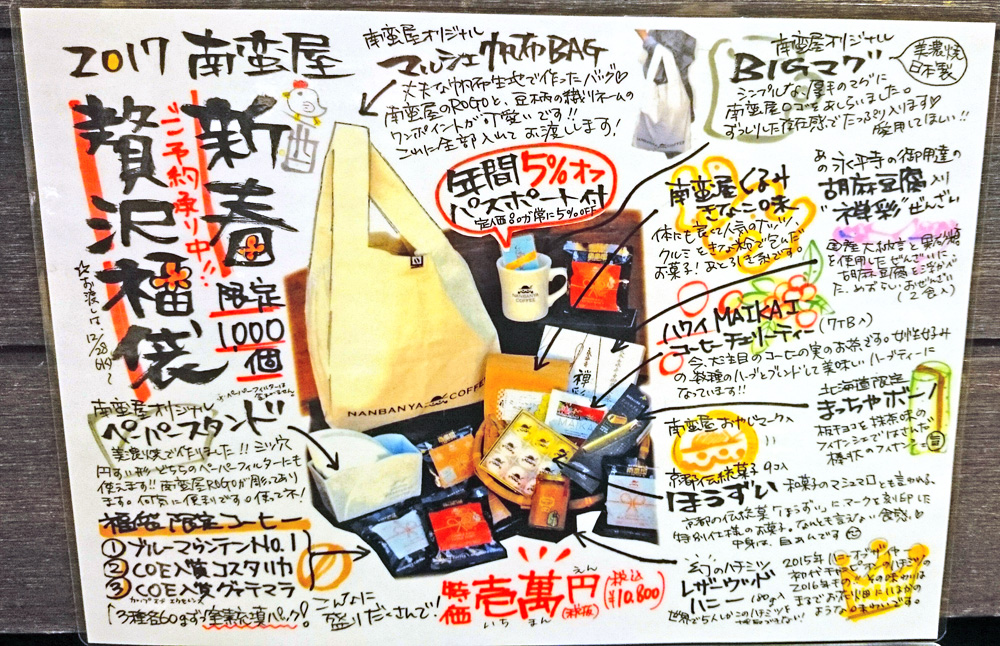 2017 南蛮屋
新春
贅沢福袋
ご予約承り中!!
限定
1000
個
☆お渡しは、12/28
南蛮屋オリジナル
マルシェ帆布BAG
丈夫な帆布生地で作ったバッグ♡
南蛮屋のROGOと、豆柄の織りネームの
ワンポイントが可愛いです!!
これに全部入れてお渡します!
南蛮屋オリジナル
BIGマグ
美濃焼
日本製
シンプルな厚手のマグに
南蛮屋ロゴをあしらいました。
ずっしりした存在感でたっぷり入ります♡
愛用してほしい!!
年間5%オフ
パスポート付
定価8のが常に5%OFF
南蛮屋くるみ
きなこ味
体にも良くて人気のナッツ、
クルミをきな粉で包んだ
お菓子!
あの永平寺の御用達の
胡麻豆腐入り
"禅彩"ぜんざい
国産大納言と
を使用したぜんざいに、
胡麻豆腐を
た、めずらしいおぜんざい
(2食入)
ハワイMAIKAI
コーヒーチェリーティー(7TB入)
今、大注目のコーヒーの実のお茶です。女性好み
の数種のハーブとブレンドして美味しいハーブティーに
なっています!!
北海道限定
まっちゃボーノ
板チョコと抹茶味の
フィアンティーヌではさみだ
棒状のフィナンシェ
南蛮屋おやじマーク入
京都伝統菓子 9コ入
ほうずい
和菓子のマシュマロとも言われる、
京都の伝統菓「ほうずい」にマークを刻印した
特別仕様のお菓子。なんとも言えない食感♡
中身は、白あんです
幻のハチミツ
レザーウッド
ハニー
180g入
世界で5%しかこのハチミツを
2015年ハニーオブザイヤー
初代チャンピオンのハチミツ
2016年も
までもお花畑にいるかの
ような味わいです。
南蛮屋オリジナル
※ペーパーフィルターは
含みません。
ペーパースタンド
美濃焼で作りました!! 三ツ穴
円すい形どちらのペーパーフィルターにも
使えます!! 南蛮屋ROGOが彫ってあり
ます。何気に便利です。使ってネ!
福袋限定コーヒー
①ブルーマウンテンNo.1
②COE入賞コスタリカ
③COE入賞グァテマラ
カップオブエクセレンス
「3種各60gずつ窒素充填パック!
こんなに
盛りだくさんで!
特価 壱萬円(税抜)
いちまんえん
(税込
¥10,800)
NANBANYA
COFFEE
NANBANYA COFFEE